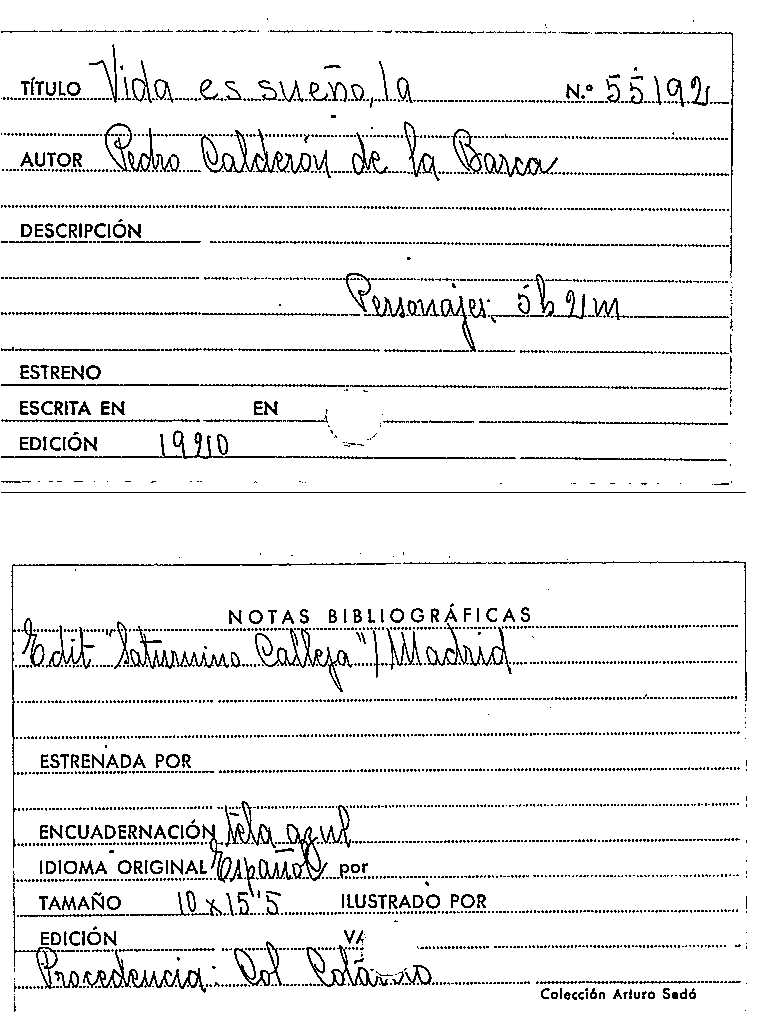 TÍTULO Vida es sueño, la N.º 55192
AUTOR Pedro Calderón de la Barca
DESCRIPCIÓN
Personajes: 5h 2m
ESTRENO
ESCRITA EN EN
EDICIÓN 1920
NOTAS BIBLIOGRÁFICAS
Edit "Saturnino Calleja" / Madrid
ESTRENADA POR
ENCUADERNACIÓN tela azul
IDIOMA ORIGINAL Español por
TAMAÑO 10 x 15'5 ILUSTRADO POR
EDICIÓN VA
Procedencia: Col
Colección Arturo Sedó